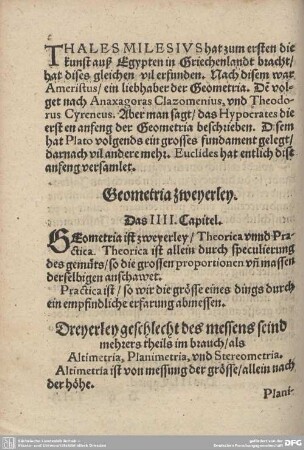 THALES MILESIVS hat zum ersten die
kunst auß Egypten in Griechenlandt bracht/
hat dises gleichen vil erfunden. Nach disem war
Ameristus/ ein liebhaber der Geometria. De vol-
get nach Anaxagoras Clazomenius, vnd Theodo-
rus Cyreneus. Aber man sagt/ das Hypocrates die
ersten anfeng der Geometria beschrieben. Disem
hat Plato volgends ein grosses fundament gelegt/
darnach vil andere mehr. Euclides hat entlich dise
anfeng versamlet.
Geometria zweyerley.
Das IIII. Capitel.
GEometria ist zweyerley/ Theorica vnnd Pra-
ctica. Theorica ist allein durch speculierung
des gemüts/ so die grossen proportionen vñ massen
derselbigen anschawet.
Practica ist/ so wir die grösse eines dings durch
ein empfindliche erfarung abmessen.
Dreyerley geschlecht des messens seind
mehrers theils im brauch/ als
Altimetria, Planimetria, vnd Stereometria.
Altimetria ist von messung der grösse/ allein nach
der höhe.
Plani-
DFG